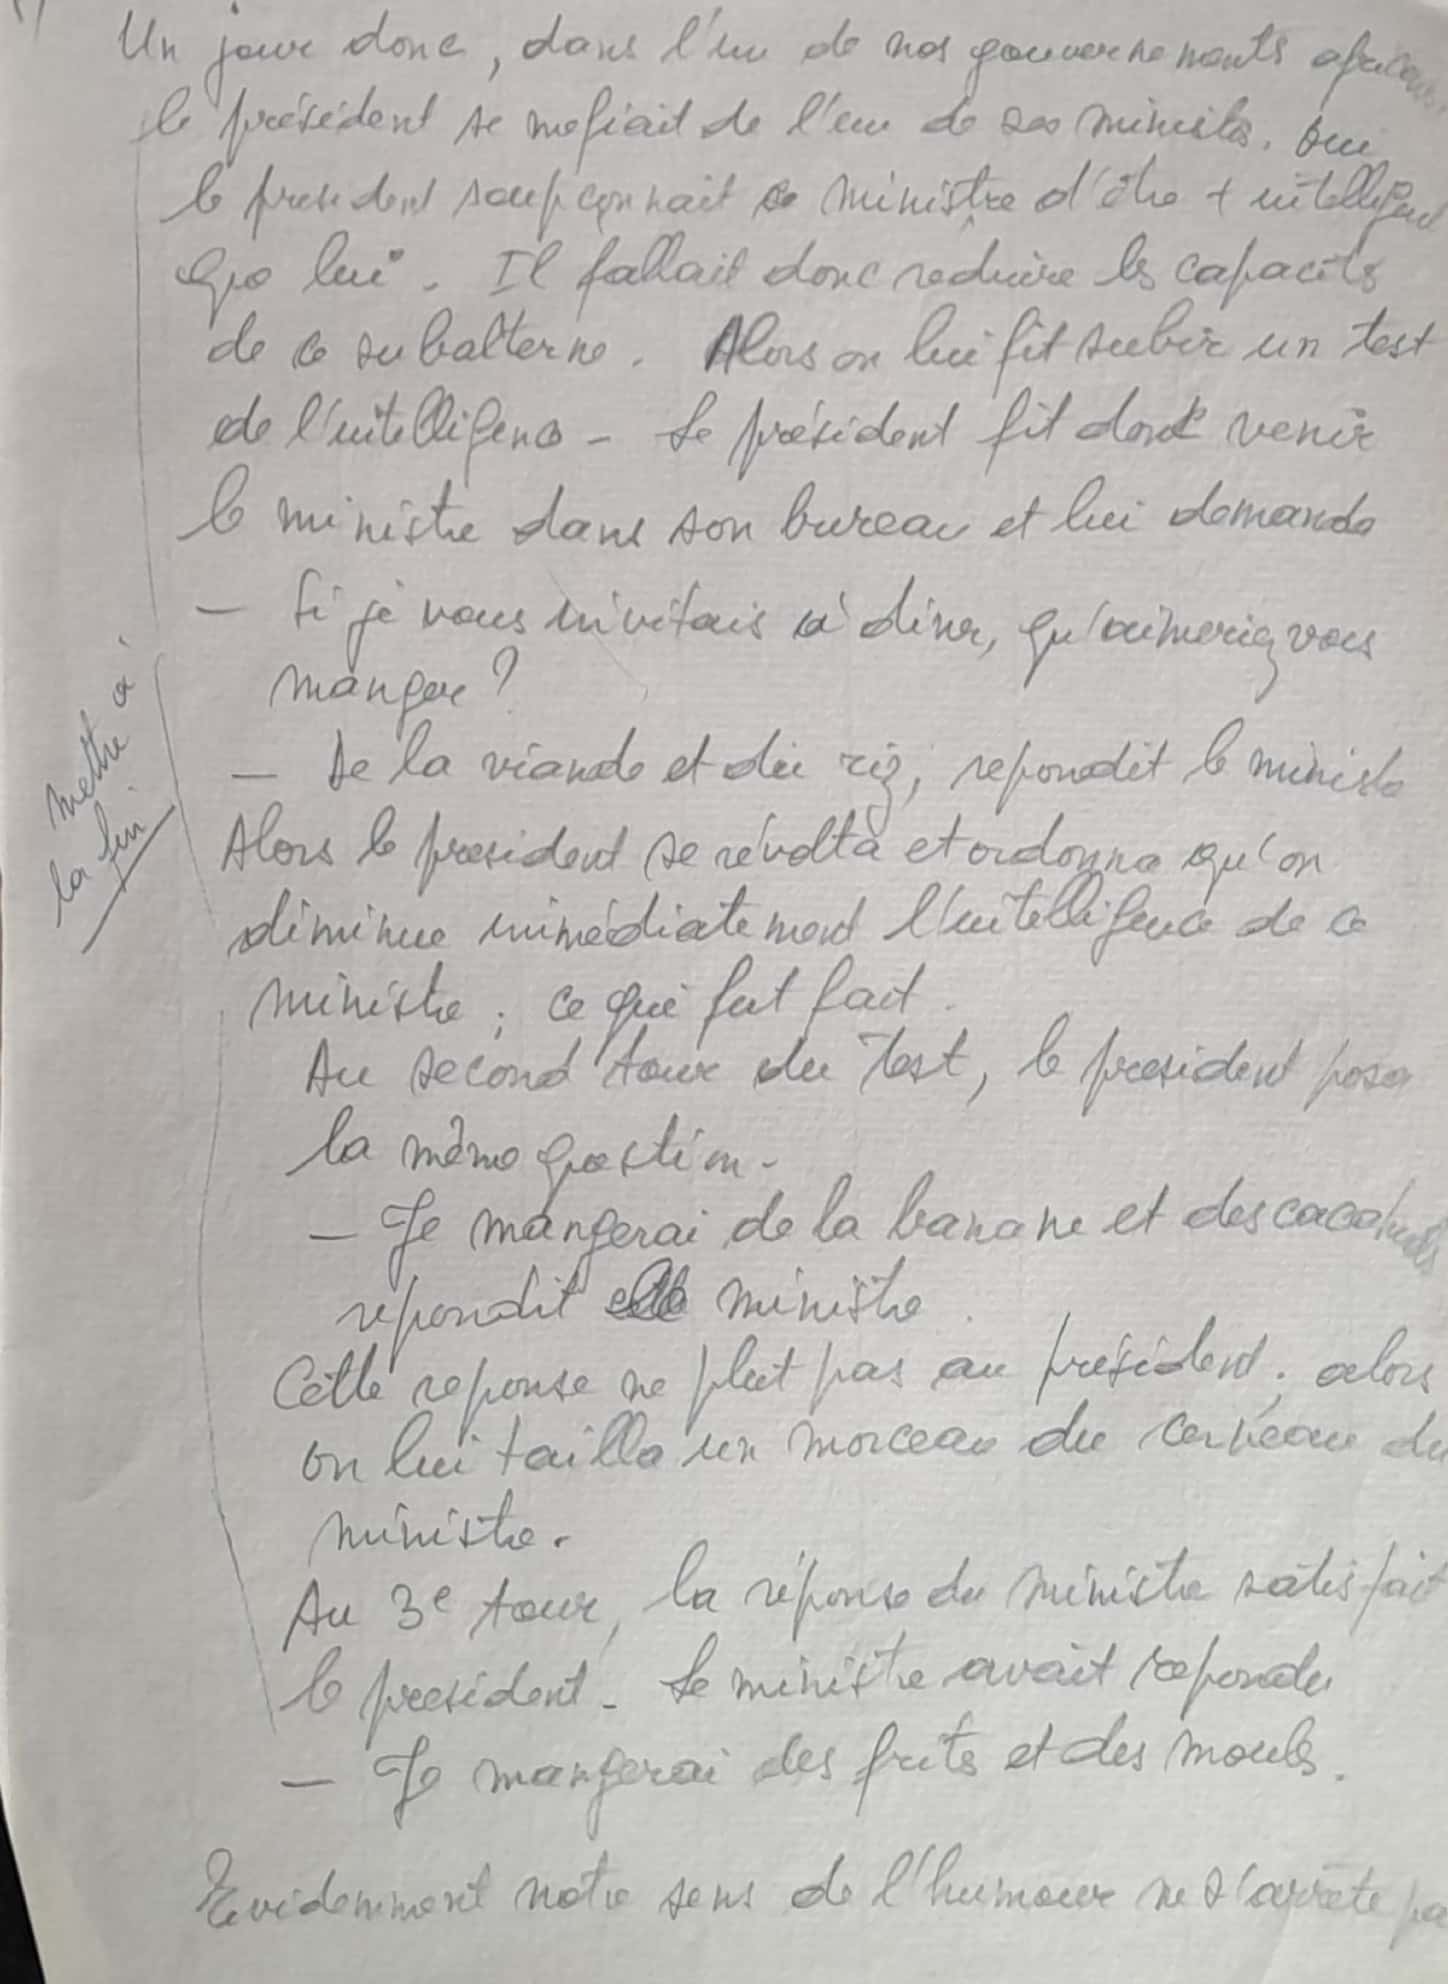 Un jour donc, dans l'un de nos gouvernements
le président se mefiait de l'un de ses ministres. Oui
le president soupçonnait ce ministre d'être + intelligent
que lui. Il fallait donc reduire les capacités
de ce subalterne. Alors on lui fit subir un test
de l'intelligence - Le président fit donc venir
le ministre dans son bureau et lui demanda
— Si je vous invitais à dîner, qu'aimeriez vous
manger ?
— De la viande et du riz, repondit le ministre
Alors le president se révolta et ordonna qu'on
diminue immédiatement l'intelligence de ce
ministre ; ce qui fut fait.
Au second tour du test, le president posa
la même question -
— Je mangerai de la banane et des cacahuètes
repondit le ministre.
Cette reponse ne plut pas au président ; alors
on lui tailla un morceau du cerveau du
ministre.
Au 3e tour, la réponse du ministre satisfait
le president - Le ministre avait repondu
— Je mangerai des frites et des moules.
Evidemment notre sens de l'humour ne s'arrête pas
mettre à
la fin